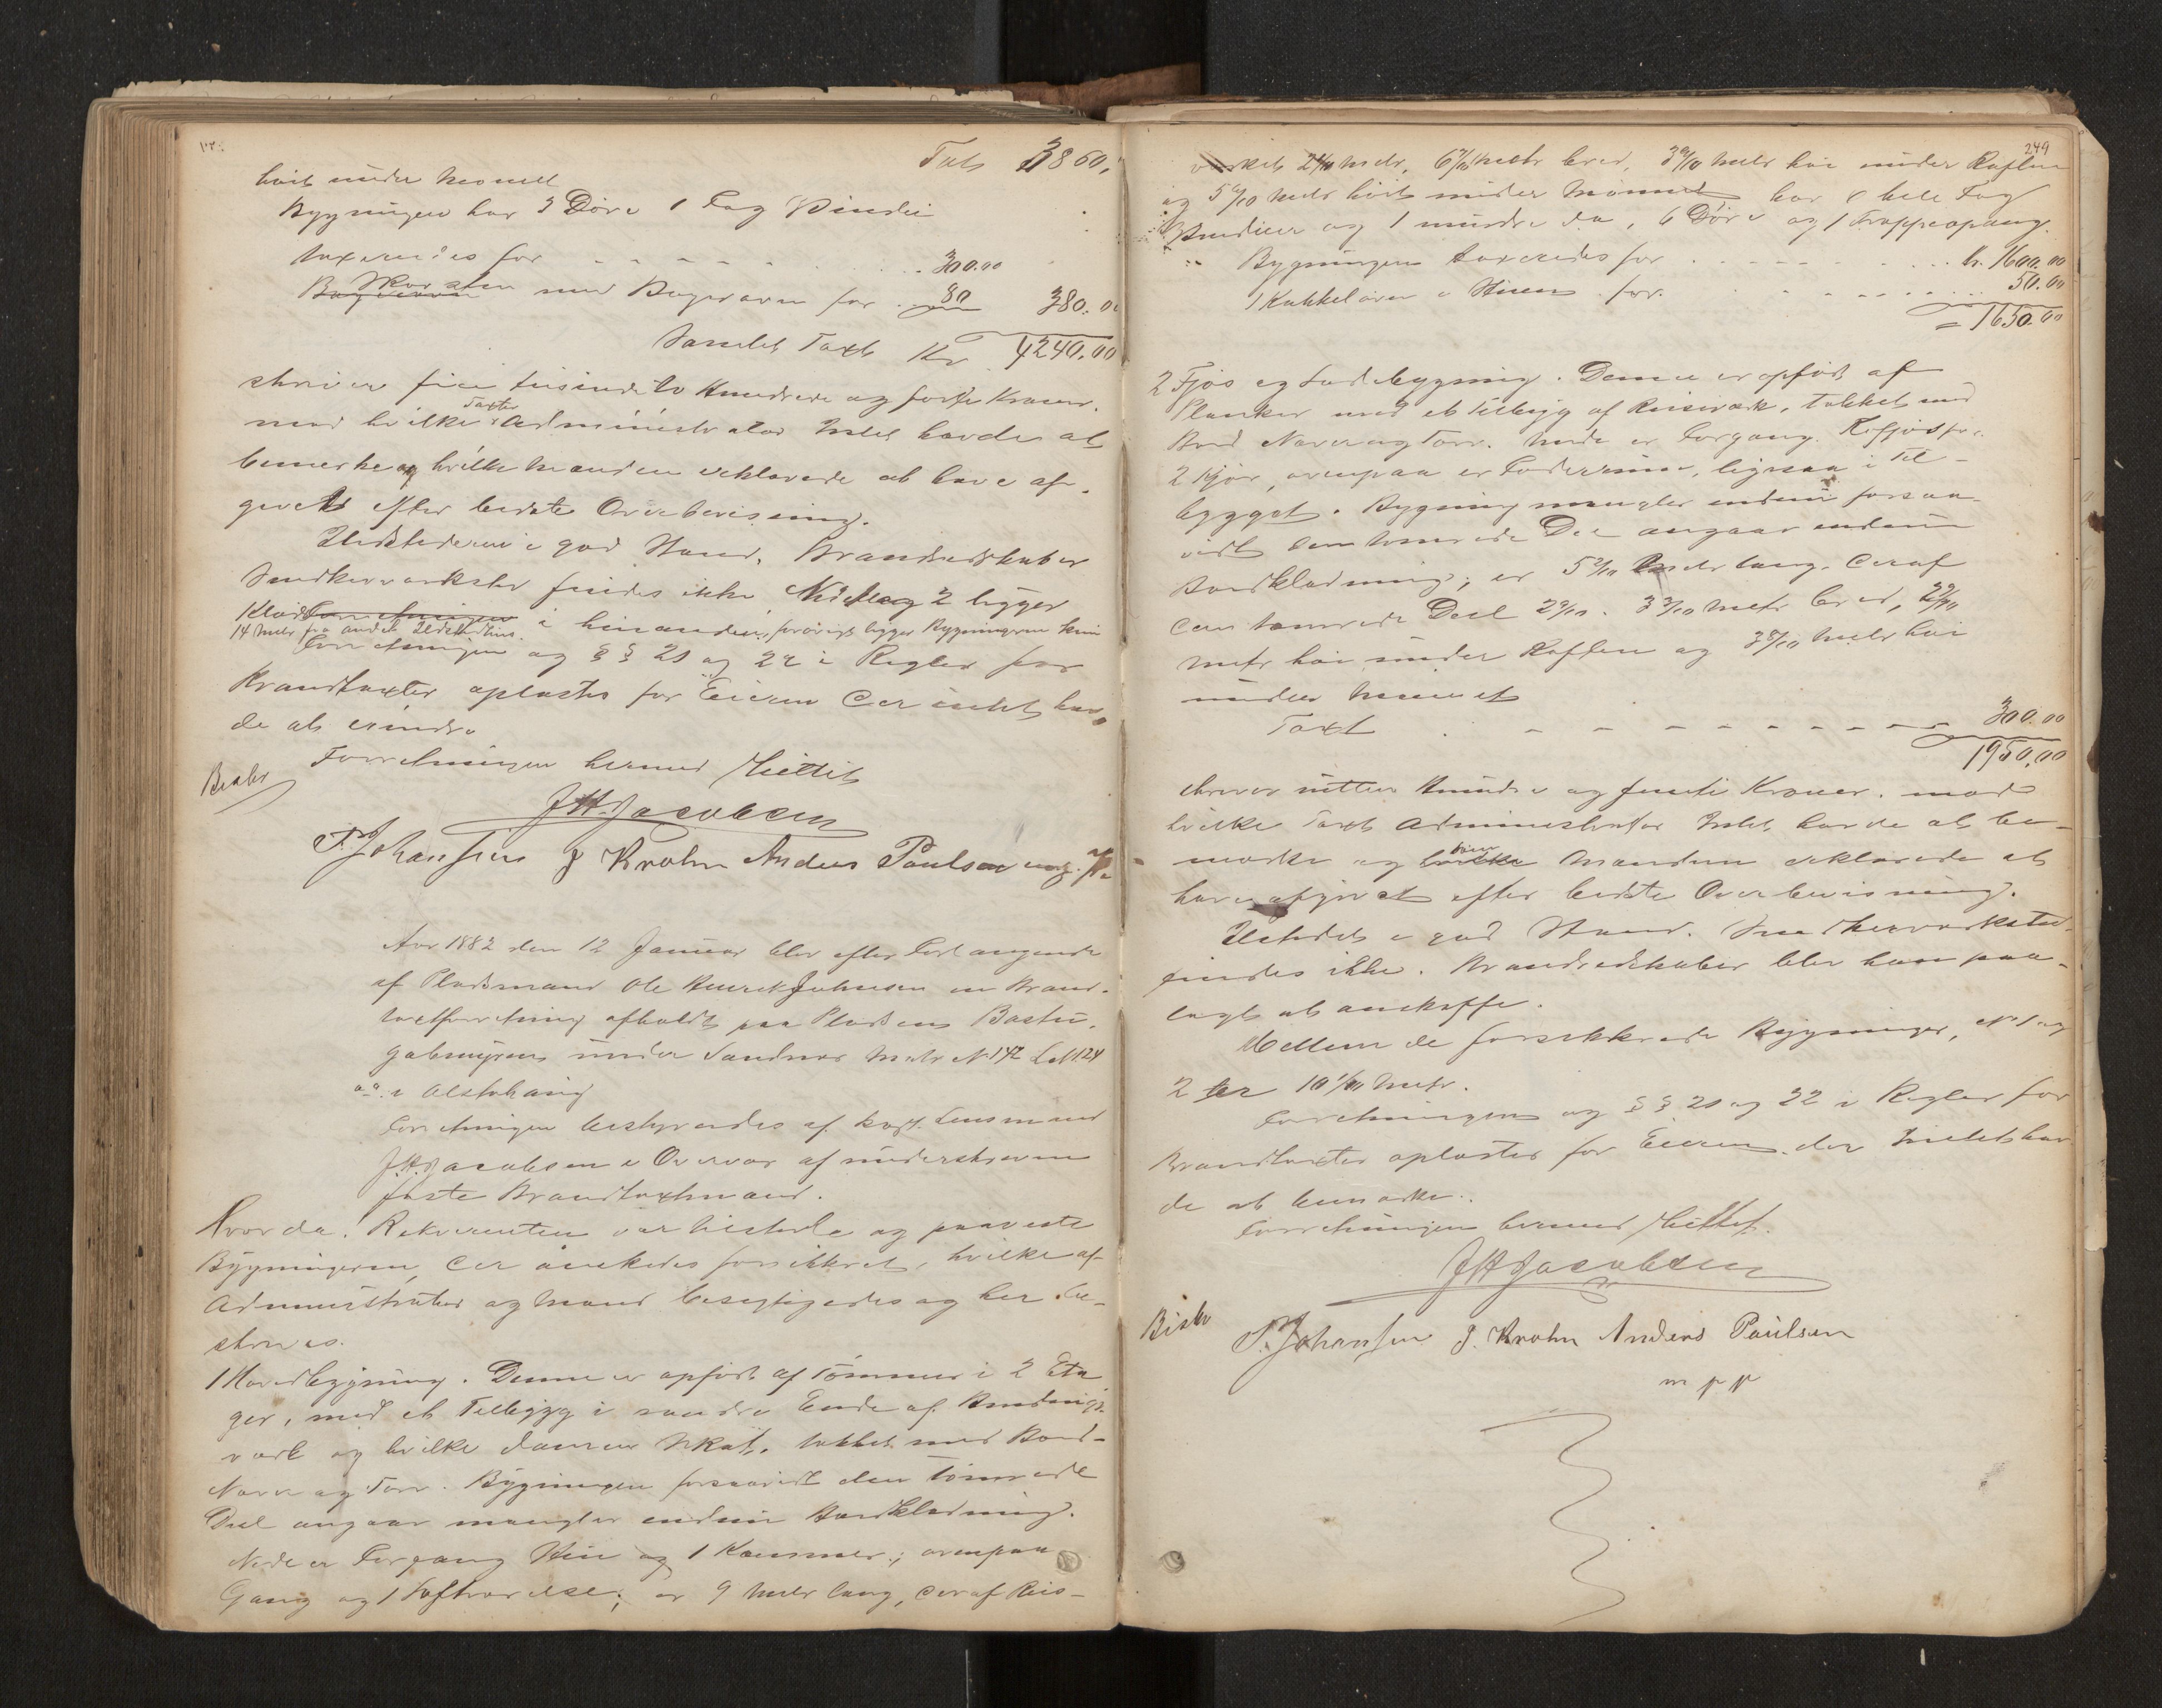 Tals 3860,
høit under Mønet
Bygningen har 3 Døre 1 Fag Vindu
taxeredes for - - - - - - 300.00
Skorsten med Bagerovn for 80 380.00
Samlet Taxt Kr 4240.00
skriver fire tusinde to Hundrede og førti Kroner.
mod hvilke Taxter Administrator Intet havde at
bemerke og hvilke Mændene erklærede at have af-
givet efter bedste Overbevisning.
Ildstederne i god Stand, Brandredskaber
Snedkerværksted findes ikke. No 1 og 2 ligger
i hinanden, forøvrigt ligger Bygningerne kun
14 Meter fra andet Ildsted
Forretningen og § § 21 og 22 i Regler for
Brandtaxter oplæstes for Eieren der intet hav-
de at erindre
Forretningen hermed sluttet
Beskr
J H Jacobsen
P. Johansen J Krohn Anders Paulsen
Aar 1882 den 12 Januar blev efter Forlangende
af Pladsmand Ole Henrik Johnsen en Brand-
taxtforretning afholdt paa Pladsen Bastu-
gabmyren under Sandnes Matr No 142 L No 124
i Alstahaug
Forretningen bestyredes af kgst. Lensmand
J. H. Jacobsen i Overvær af underskrevne
faste Brandtaxtmænd.
Hvorda: Rekvirenten var tilstede og paaviste
Bygningerne, der ønskedes forsikkret, hvilke af
Administrator og Mænd besigtigedes og her be-
skrives.
1 Hovedbygning. Denne er opført af Tømmer i 2 Eta
ger, med et Tilbygg i søndre Ende af Bindings-
værk og hvilke danner Skot, tækket med Bord-
Næver og Torv. Bygningen forsaavidt den tømrede
Deel angaar mangler endnu Bordklædning.
Nede er Forgang Stue og 1 Kammer; ovenpaa
Gang og 1 Loftværelse; er 9 Meter lang, deraf Reis-
249
værket 2 4/10 Metr, 6 7/10 Metr bred, 3 9/10 Metr høi under Raften
og 5 6/10 Metr høit under Mønnet har 8 hele Fag
Vinduer og 1 mindre da, 6 Døre og 1 Trappeopgang.
Bygningen taxeredes for - - - - - kr. 1600.00
1 Kakkelovn i Stuen for. - - - - - 50.00
= 1650.00
2 Fjøs og Ladebygning. Denne er opført af
Planker med et Tilbygg af Reisværk, tækket med
Bord Næver og Torv. Nede er Forgang. Kofjøs for
2 Kjør, ovenpaa er Foderrum, ligesaa i Til-
bygget. Bygning mangler endnu forsaa-
vidt den tømrede Del angaar endnu
Bordklædning; er 5 Metr lang. deraf
den tømrede Deel 2 9/10. 3 3/10 Metr bred, 2 2/10
Metr høi under Raften og 3 8/10 Metr høi
under Mønet
Taxt - - - - - - - - - 300.00
1950.00
skriver nitten Hundre og femti Kroner. mod
hvilke Taxt Administrator Intet havde at be-
mærke og Mændene erklærede at
have afgivet efter bedste Overbevisning.
Ildstedet i god Stand. Snedkerværksted
findes ikke. Brandredskaber blev ham paa-
lagt at anskaffe.
Mellem de forsikkrede Bygninger, No 1 og
2 er 10 1/10 Metr.
Forretningen og § § 21 og 22 i Regler for
Brandtaxter oplæstes for Eieren der Intet hav
de at bemærke.
Forretningen hermed sluttet.
J H Jacobsen
Beskr
P. Johansen J. Krohn Anders Paulsen
m p p